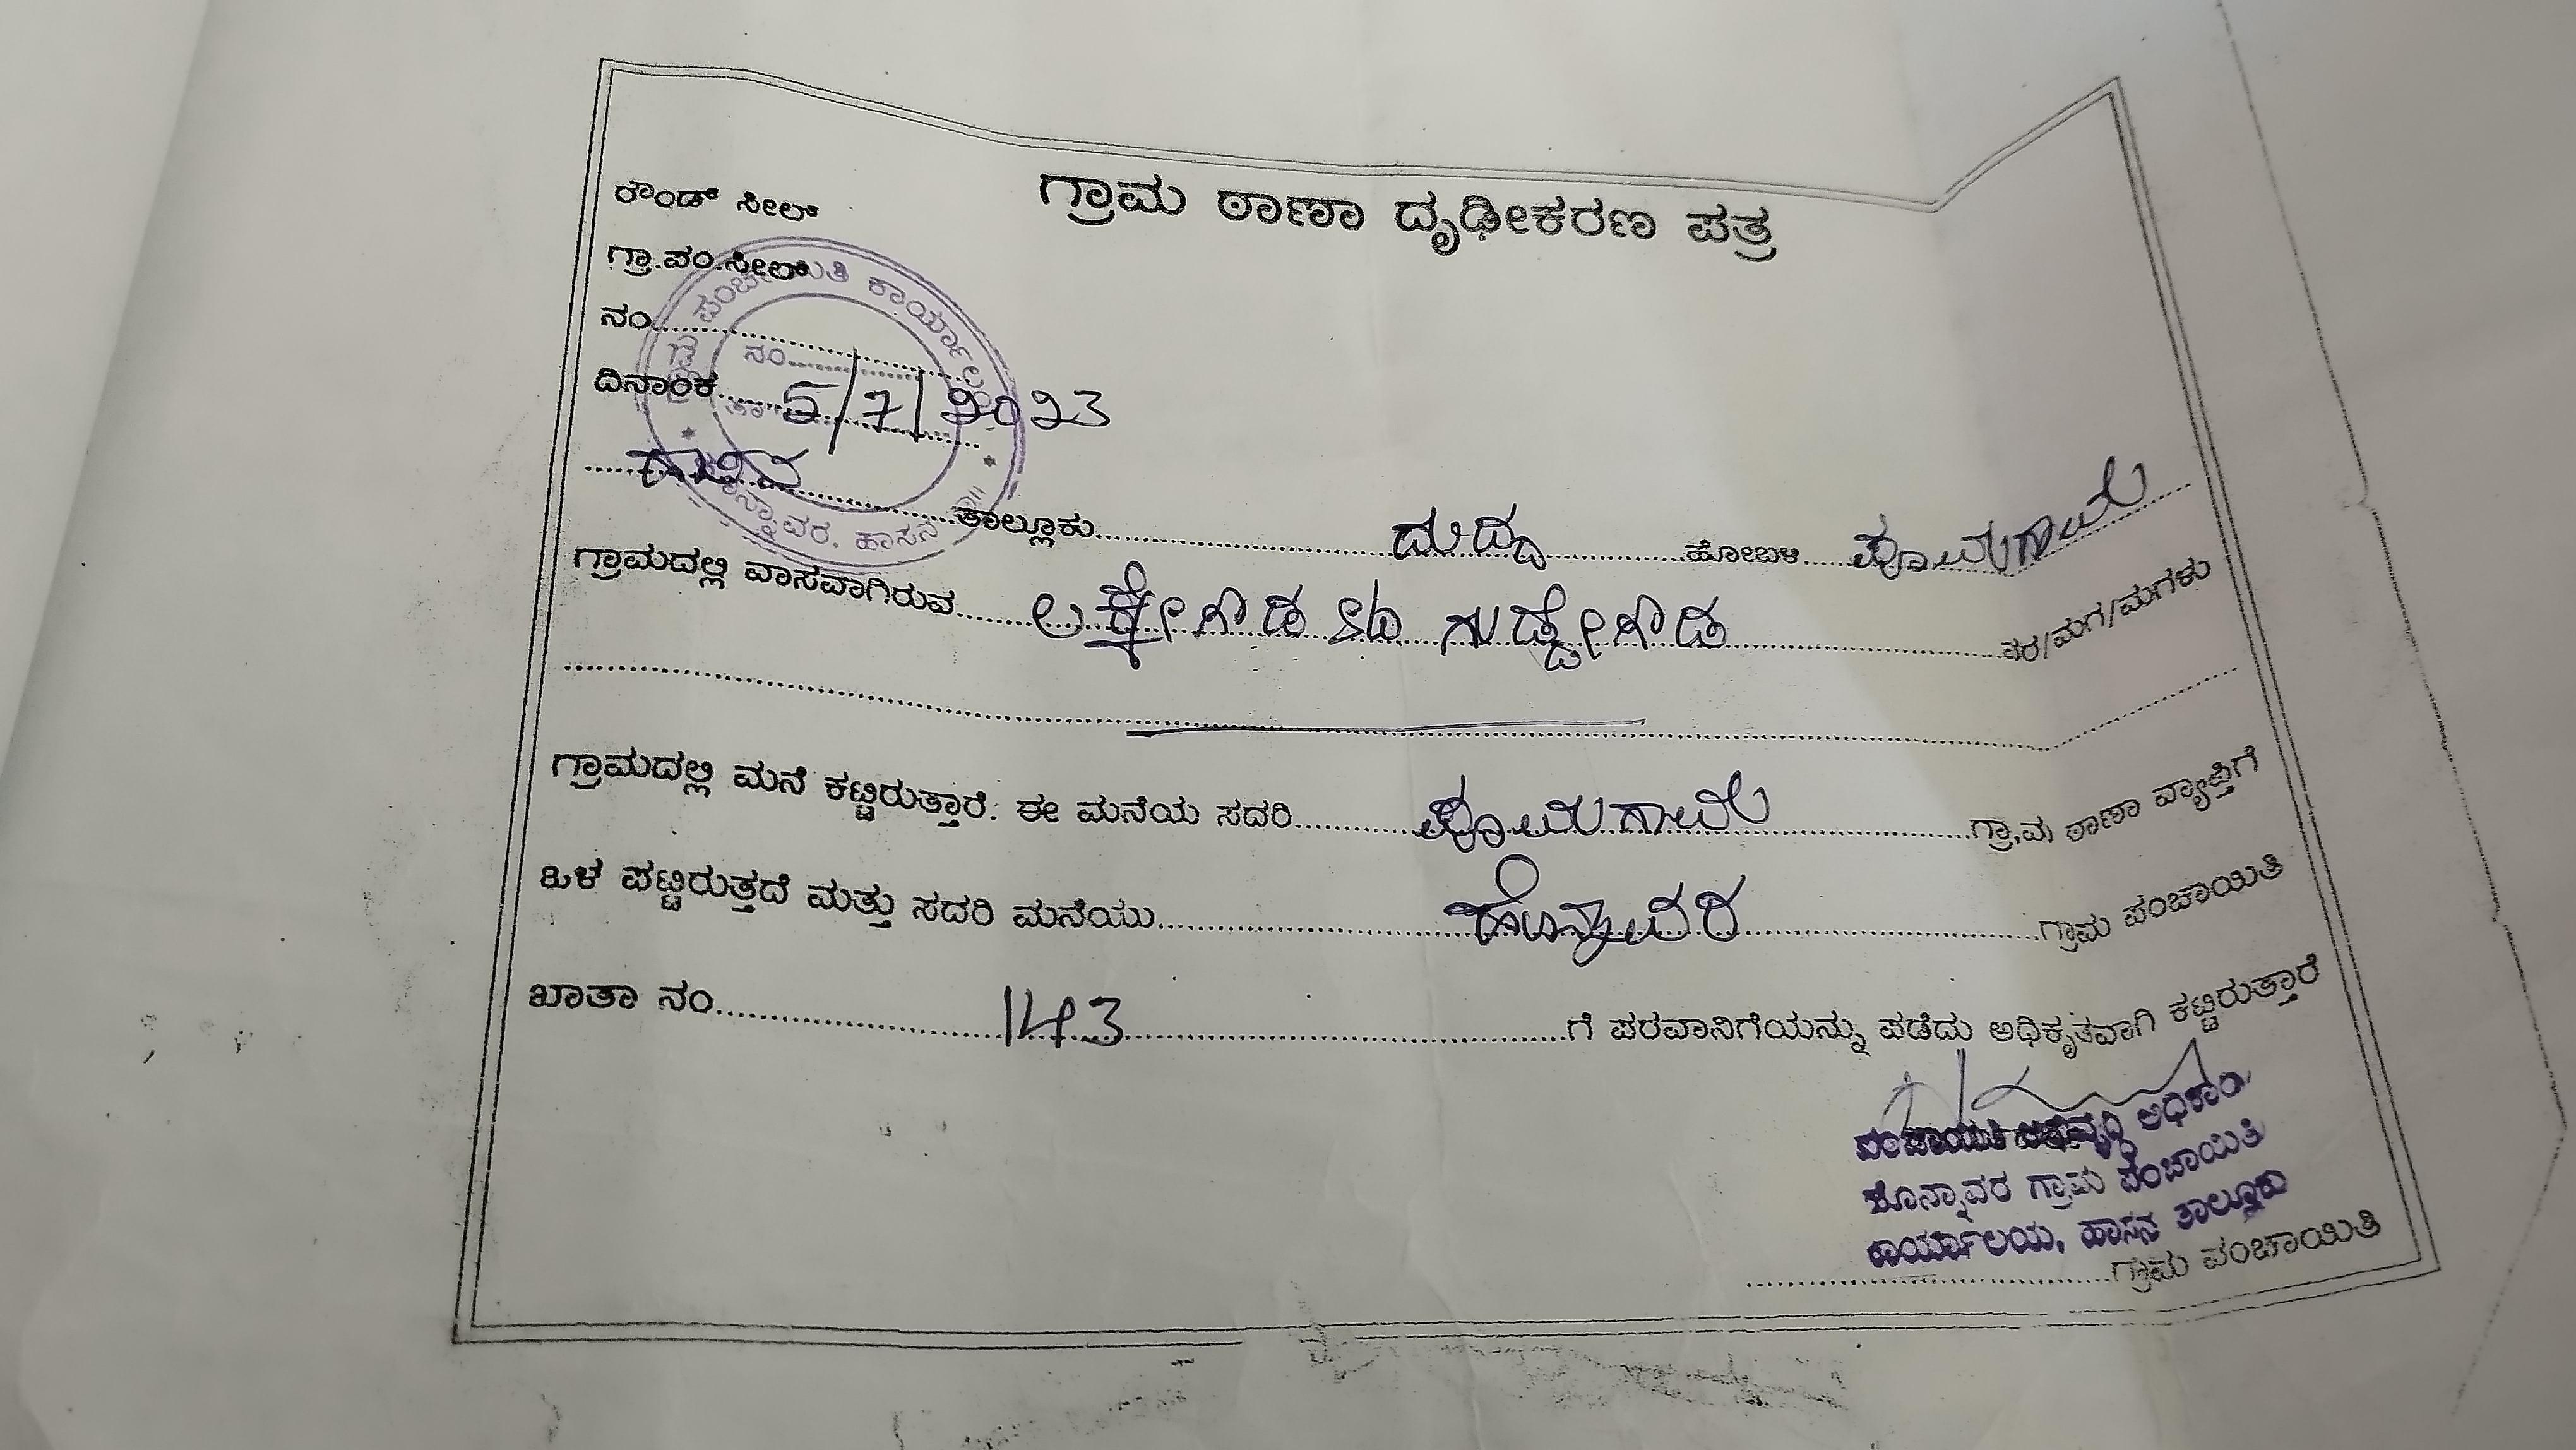 ಗ್ರಾಮ ಠಾಣಾ ದೃಢೀಕರಣ ಪತ್ರ
ರೌಂಡ್ ಸೀಲ್
ಗ್ರಾ.ಪಂ.ಸೀಲ್
ನಂ
ದಿನಾಂಕ 5/7/2023
ಹಾಸನ ತಾಲ್ಲೂಕು ದುದ್ದ ಹೋಬಳಿ
ಗ್ರಾಮದಲ್ಲಿ ವಾಸವಾಗಿರುವ ಲಕ್ಕೇಗೌಡ ಗುಡ್ಡೇಗೌಡ ರವರ/ಮಗ/ಮಗಳು
ಗ್ರಾಮದಲ್ಲಿ ಮನೆ ಕಟ್ಟಿರುತ್ತಾರೆ. ಈ ಮನೆಯ ಸದರಿ ಗ್ರಾಮ ಠಾಣಾ ವ್ಯಾಪ್ತಿಗೆ
ಒಳ ಪಟ್ಟಿರುತ್ತದೆ ಮತ್ತು ಸದರಿ ಮನೆಯು ಹೊನ್ನಾವರ ಗ್ರಾಮ ಪಂಚಾಯಿತಿ
ಖಾತಾ ನಂ 143 ಗೆ ಪರವಾನಿಗೆಯನ್ನು ಪಡೆದು ಅಧಿಕೃತವಾಗಿ ಕಟ್ಟಿರುತ್ತಾರೆ
ಪಂಚಾಯಿತಿ ಅಭಿವೃದ್ಧಿ ಅಧಿಕಾರಿ
ಹೊನ್ನಾವರ ಗ್ರಾಮ ಪಂಚಾಯಿತಿ
ಕಾರ್ಯಾಲಯ, ಹಾಸನ ತಾಲ್ಲೂಕು
ಗ್ರಾಮ ಪಂಚಾಯಿತಿ